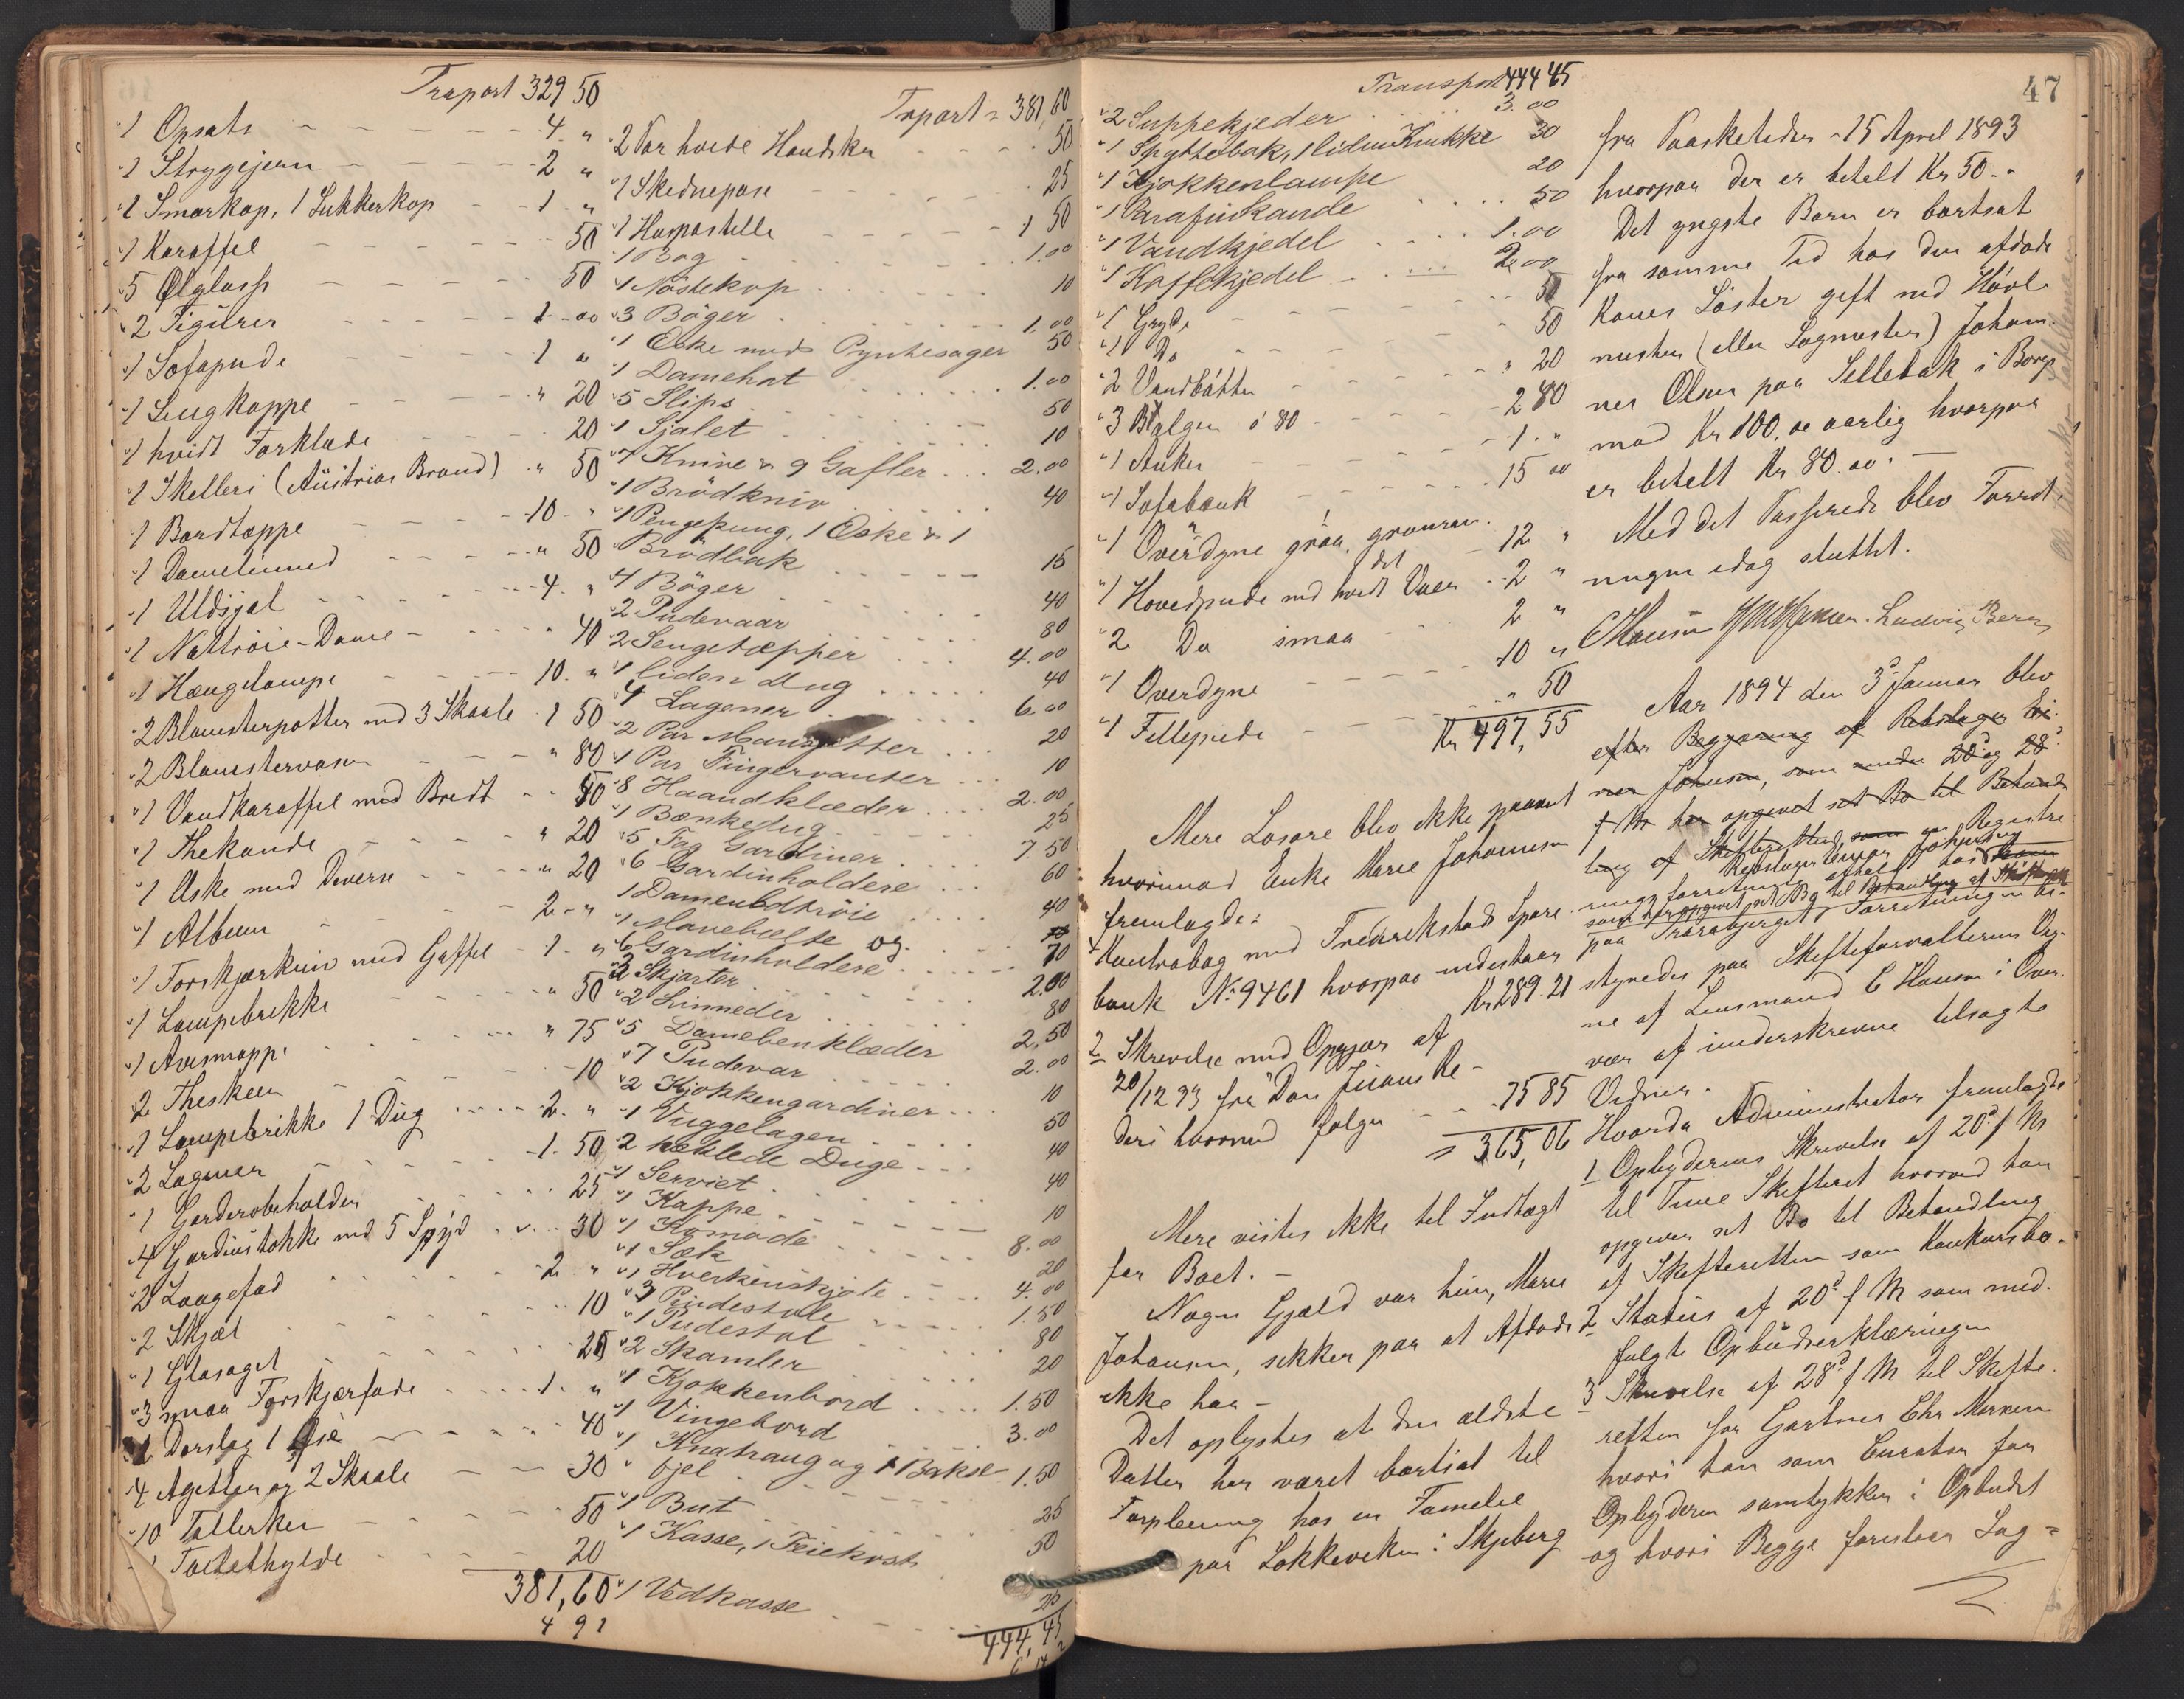 Trsport 329 50
1 Opsats 4. "
1 Strygejern 2 "
1 Smørkop, 1 Sukkerkop 1. "
1 Karaffel 50
5 Ølglass 50
2 Figurer 1-00
1 Sofapude 1 "
1 Sengkappe " 20
1 hvidt Forklæde 20
1 Skilleri (Austrias Brand) " 50
1 Bordtæppe 10. "
1 Damelinned " 50
1 Uldsjal 4. "
1 Nattrøie-Dame " 40
1 Hængelampe 10. "
2 Blomsterpotter med 3 Skaale 1 50
2 Blomstervaser " 80
1 Vandkaraffel med Bredt 50
1 Thekande " 20
1 Æske med Diverse " 20
1 Album 2. "
1 Forskjærkniv med Gaffel 1. "
1 Lampebrikke " 50
1 Avismappe " 75
2 Theskeer 10
1 Lampebrikke 1 Dug 2. "
2 Lagener 1. 50
1 Garderobeholder 25
4 Gardinstokke med 5 Spyd 30
2 Laagefad 2 "
2 Skjæl 10
1 Glasaget 25
3 smaa Forskjærfade 1. "
1 Dørslag 1 Øse 40
4 Asjetter og 2 Skaale 30
10 Tallerker 50
20
381,60
4 9 1
Trsport = 381,60
2 Par hvide Handsker 50
1 Skednepose 25
1 Huspostille 1 50
1 Bog 1.00
1 Nøstekop 10
3 Bøger 1.00
1 Æske med Pyntesager 50
1 Damehat 1.00
5 Slips 50
1 Sjalet 10
7 Knive & 9 Gafler 2.00
1 Brødkniv 40
1 Pengepung, 1 Æske & 1
Brødbak 15
4 Bøger 40
2 Pudevaar 80
2 Sengetæpper 4.00
1 liden Dug 40
4 Lagener 6.00
2 Par 20
1 Par Fingervanter 10
8 Haandklæder 2.00
1 Bænkedug 25
5 Fag Gardiner 7 50
6 Gardinholdere 60
1 Dameuldtrøie 40
1 Mavebælte og
6 Gardinholdere 70
3 Skjorter 2.00
2 Linneder 80
5 Damebenklæder 2,50
7 Pudevar 2.00
2 Kjøkkengardiner 10
1 Vuggelagen 50
2 hæklede Duge 40
1 Serviet 40
1 Kappe 10
1 Komode 8.00
1 Sæk 20
1 Hverkenskjole 4.00
3 Pindestole 1.50
1 Pudestol 80
2 Skamler 20
1 Kjøkkenbord 1.50
1 Vingebord 3.00
1 Knatraug og 1 Bakse
fjel 1.50
1 But 25
1 Kasse, 1 Feiekost 50
1 Vedkasse 25
444,45
Transport 444 45
2 Suppekjeder 3.00
1 Spyttebak, 1 liden Krukke 30
1 Kjøkkenlampe 20
1 Parafinkande 50
1 Vandkjedel 1.00
1 Kaffekjedel 2.00
1 Gryde 50
1 Do 50
2 Vandbøtter " 20
3 Balger á 80 2 40
1 Anker 1. "
1 Sofabænk 15 00
1 Overdyne graa, graarandet 12 "
1 Hovedpude med hvidt Vaar 2 "
2 Do smaa 2 "
1 Overdyne 10 "
1 Fillepude " 50
Kr 497,55
Mere Løsøre blev ikke paavist
hvorimod Enke Marie Johannesen
fremlagde:
1 Kontrabog med Fredrikstads Spare-
bank No 9461 hvorpaa indestaar
Kr 289.21
2 Skrivelse med Opgjør af
20/12 93 fra Don Juans Re-
deri hvorved følger 75 85
= 365,06
Mere vistes ikke til Indtægt
for Boet. -
Nogen Gjæld var hun, Marie
Johansen, sikker paa at Afdøde
ikke har -
Det oplystes at den ældste
Datter har været bortsat til
Forpleining hos en Familie
paa Løkkevæken i Skjeberg
47
fra Paasketider - 15 April 1893
hvorpaa der er betalt Kr 50. -
Det yngste Barn er bortsat
fra samme Tid hos den afdøde
Kones Søster gift med Høvl-
mester (eller Sagmester) Johan-
nes Olsen paa Sellebak i Borge
mod Kr 100,00 aarlig hvorpaa
er betalt Kr 80.00. -
Med det Passerede blev Forret-
ningen idag sluttet.
C Hansen Ludvig Berg
Aar 1894 den 3d Januar blev
efter Begjæring af Rebslager Ei-
nar Johnsen, som under 20d og 28d
f M har opgivet sit Bo til Behand-
ling af Skifteretten, som en Registre-
ringsforretning afholdt hos
Rebslager Einar Johnsen
som har opgivet sit Bo til Behandling af Skifteretten
paa Trosvigberget. Forretningen be-
styredes paa Skifteforvalterens Veg-
ne af Lensmand C Hansen i Over-
vær af underskrevne tilsagte
Vidner.
Hvorda Administrator fremlagde
1 Opbyderens Skrivelse af 20d f M
til Tune Skifteret hvorved han
opgiver sit Bo til Behandling
af Skifteretten som Konkursbo.
2 Status af 20d f M som med-
fulgte Opbudserklæringen
3 Skrivelse af 28d f M til Skifte-
retten fra Gartner Chr
hvori han som Curator for
Opbyderen samtykker i Opbudet
og hvori Begge foreslaar Sag-